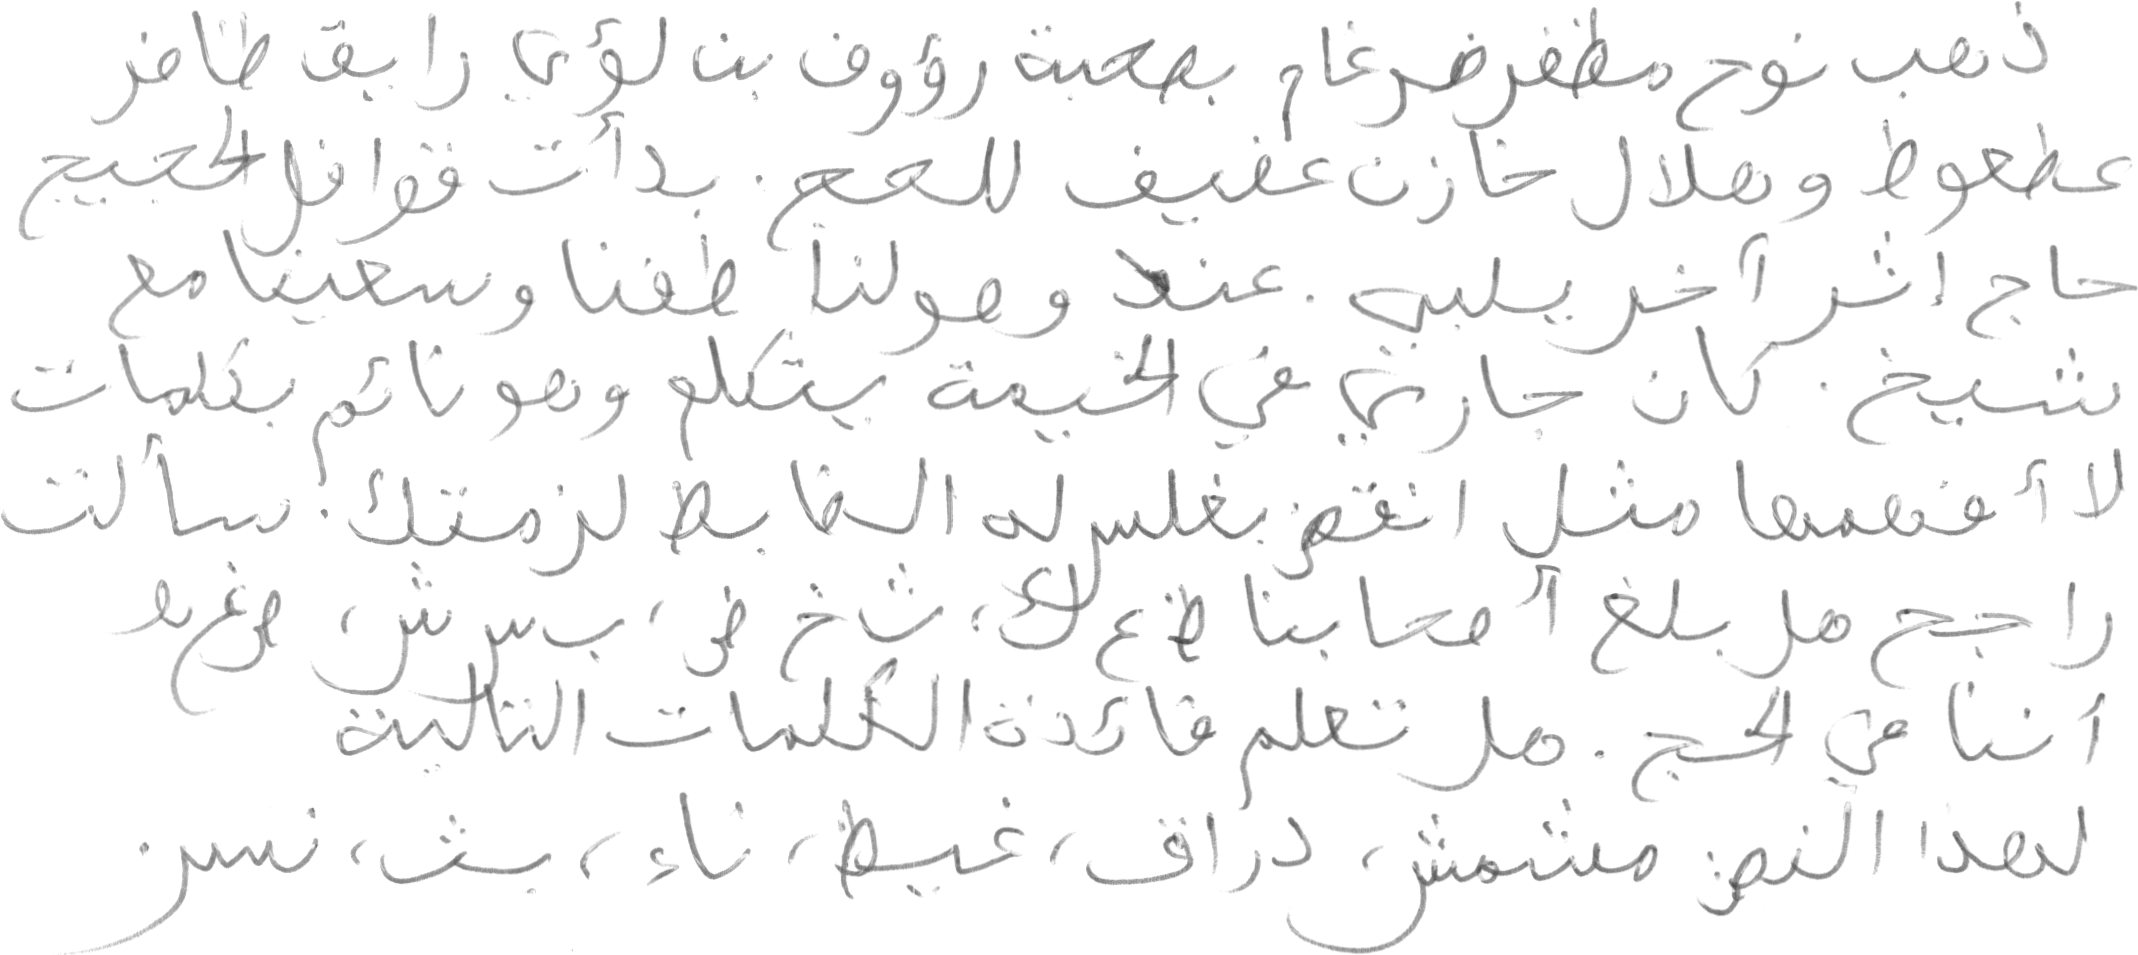 ذهب نوح مظفر ضرغام بصحبة رؤوف بن لؤي رايق ظافر
عطعوط وهلال خازن عفيف للحج. بدأت قوافل الحجيج
حاج إثر آخر يلبي. عند وصولنا طفنا وسعينا مع
شيخ. كان جاري في الخيمة يتكلم وهو نائم بكلمات
لا أفهمها مثل انقض بغلس له الضابط لزمتك. سألت
راجح هل بلغ أصحابنا ظ ع ك، ث خ ض، ب س ش، ص غ ه
أننا في الحج. هل تعلم فائدة الكلمات التالية
لهذا النص مشمش، دراق، غيظ، ناء، بث، نسر.